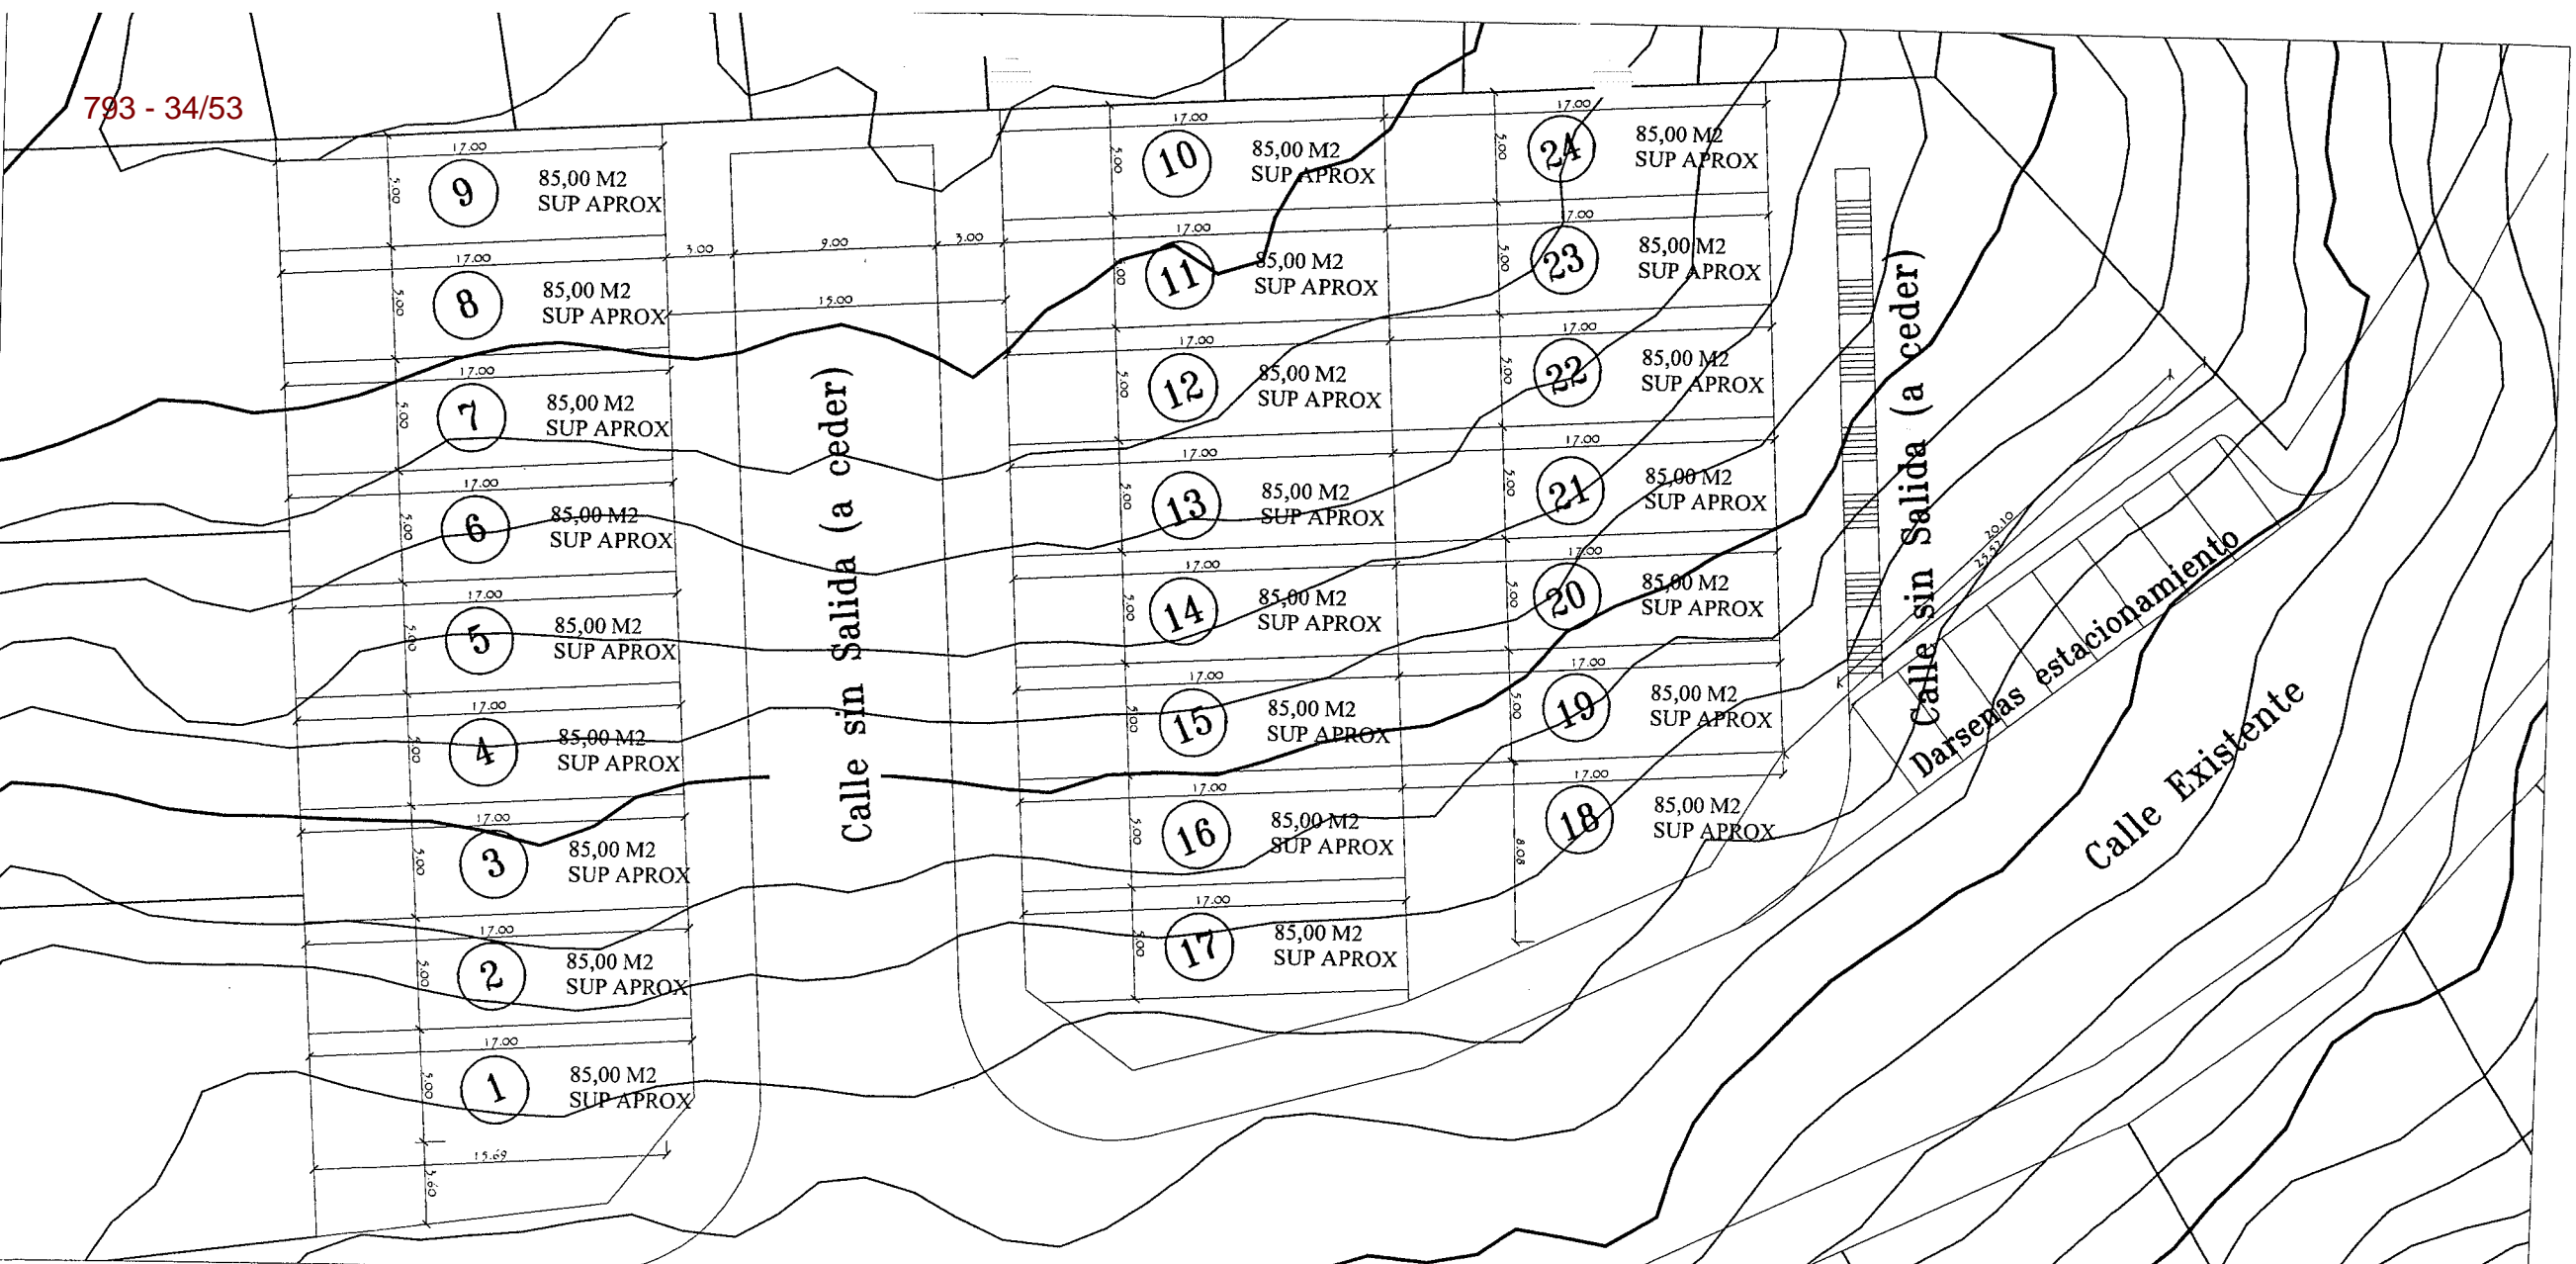 793 - 34/53
17.00
5.00
9
85,00 M2
SUP APROX
17.00
5.00
8
85,00 M2
SUP APROX
17.00
5.00
7
85,00 M2
SUP APROX
17.00
5.00
6
85,00 M2
SUP APROX
17.00
5.00
5
85,00 M2
SUP APROX
17.00
5.00
4
85,00 M2
SUP APROX
17.00
5.00
3
85,00 M2
SUP APROX
17.00
5.00
2
85,00 M2
SUP APROX
17.00
5.00
1
85,00 M2
SUP APROX
15.69
3.60
3.00
9.00
3.00
15.00
Calle sin Salida (a ceder)
17.00
5.00
10
85,00 M2
SUP APROX
17.00
5.00
11
85,00 M2
SUP APROX
17.00
5.00
12
85,00 M2
SUP APROX
17.00
5.00
13
85,00 M2
SUP APROX
17.00
5.00
14
85,00 M2
SUP APROX
17.00
5.00
15
85,00 M2
SUP APROX
17.00
5.00
16
85,00 M2
SUP APROX
17.00
5.00
17
85,00 M2
SUP APROX
17.00
5.00
24
85,00 M2
SUP APROX
17.00
5.00
23
85,00 M2
SUP APROX
17.00
5.00
22
85,00 M2
SUP APROX
17.00
5.00
21
85,00 M2
SUP APROX
17.00
5.00
20
85,00 M2
SUP APROX
17.00
5.00
19
85,00 M2
SUP APROX
17.00
8.08
18
85,00 M2
SUP APROX
Calle sin Salida (a ceder)
20.10
Darsenas estacionamiento
Calle Existente